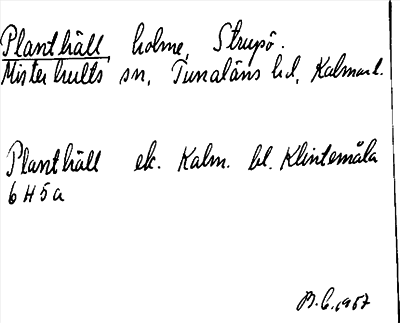 Planthäll, holme, Strupö.
Misterhults sn, Tunaläns hd, Kalmar l.
Planthäll ek. Kalm. bl. Klintemåla
6 H 5 a
B.C. 1957